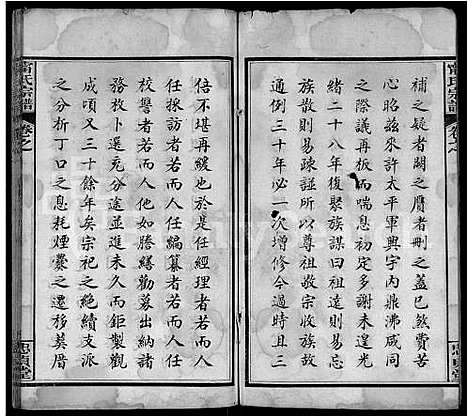 甯氏宗譜
卷之
補之疑者闕之贋者刪之蓋已煞費苦
心昭茲來許太平軍興宇內鼎沸咸同
之際議再板而喘息未定多謝未遑光
緒二十八年復聚族謀曰祖遠則易忘
族散則易疎諡所以尊祖敬宗收族故
通例三十年必一次增修今過時且三
倍不堪再緩也於是任經理者若而人
任採訪者若而人任編纂者若而人任
校讐者若而人他如謄繕勸募出納諸
務枚卜選充分途並進未久而鉅製觀
成頃又三十餘年矣宗祀之絶續支派
之分析丁口之息耗煙爨之遷移莫厝
甯氏宗譜
卷之
堂